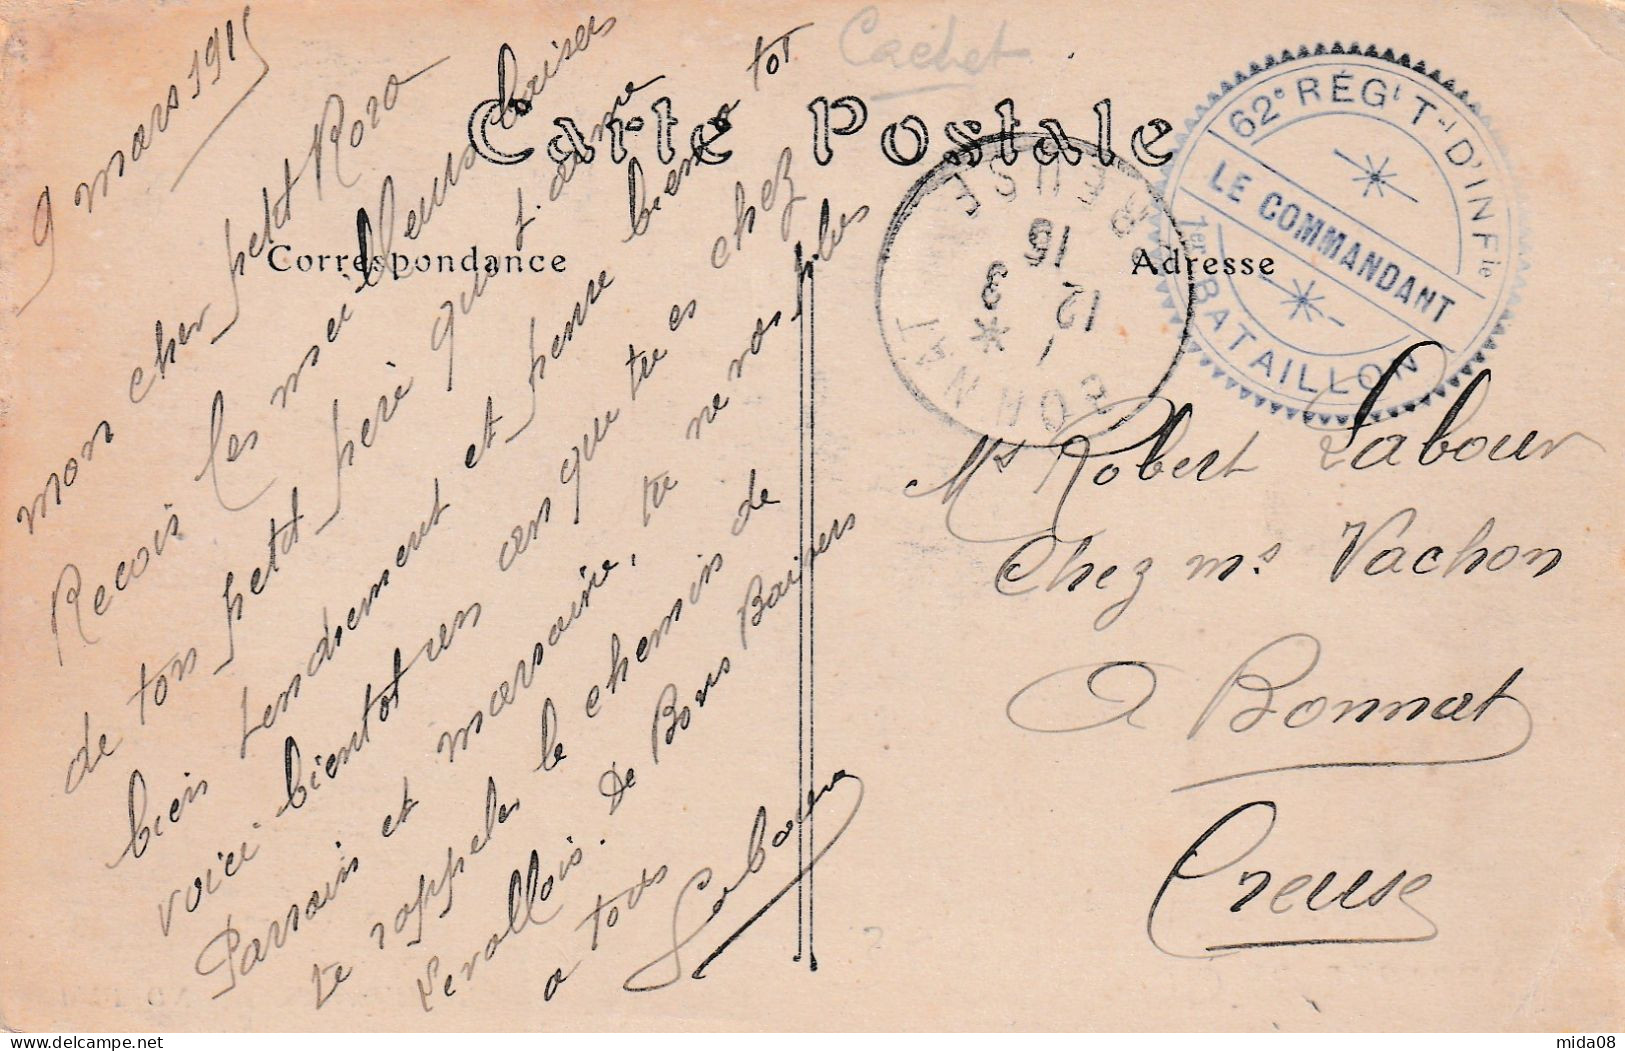 Cachet
Carte Postale
Correspondance
Adresse
9 mars 1915
mon cher petit Roro
Recois les meilleurs baisers
de ton petit père qui t'aime
bien tendrement et pense bien a toi
voici bientot un an que tu es chez
Parrain et marraine, tu ne vas plus
te rappeler le chemin de
Levallois. De Bons Baisers
a tous
Labour
62e RÉGIT D'INFie
LE COMMANDANT
1er BATAILLON
BONNAT
CREUSE
12
3
15
Mr Robert Labour
Chez mr Vachon
A Bonnat
Creuse
mida08